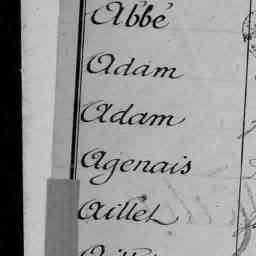 Abbé
Adam
Adam
Agenais
Aillet